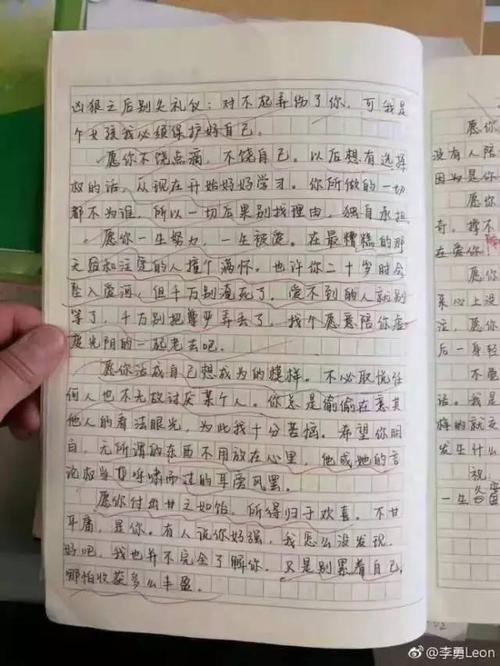 凶狠之后别失礼仪：对不起弄伤了你，可我是
个女孩我必须保护好自己。
愿你不饶点滴，不饶自己。以后想有选择
权的话，从现在开始好好学习。你所做的一切
都不为谁，所以一切后果别找理由，独自承担。
愿你一生努力，一生被爱。在最糟糕的那
天后和注定的人撞个满怀。也许你二十岁时会
坠入爱河，但千万别淹死了，爱不到的人就别
等了，千万别把尊严弄丢了。找个愿意陪你虚
度光阴的一起老去吧。
愿你活成自己想成为的模样。不必取悦任
何人也不无故讨厌某个人。你总是偷偷在意其
他人的看法眼光，为此我十分苦恼。希望你明
白，无所谓的东西不用放在心里，他或她的言
论权当是呼啸而过的耳旁风罢。
愿你付出甘之如饴，所得归于欢喜。不甘
平庸，是你。有人说你好强，我怎么没发现。
好吧，我也并不完全了解你。只是别累着自己，
哪怕收获多么丰盈。
愿你
没有人陪
因为是你
愿
奇，撑不
在爱你
愿
来心上没
注，愿你
后一身轻
不要
话。我是
悔的就
发生什么
一生
@李勇Leon